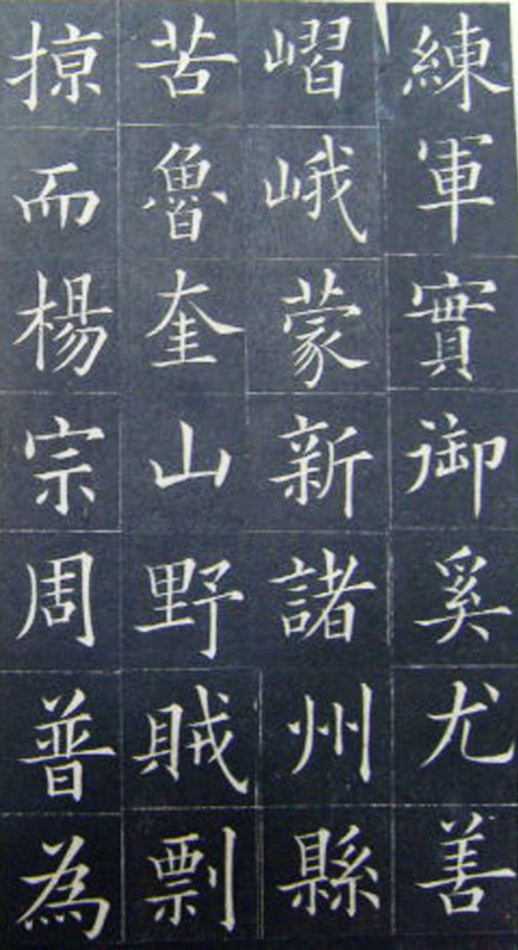 練軍實御奚尤善
嶍峨蒙新諸州縣
苦魯奎山野賊剽
掠而楊宗周普為